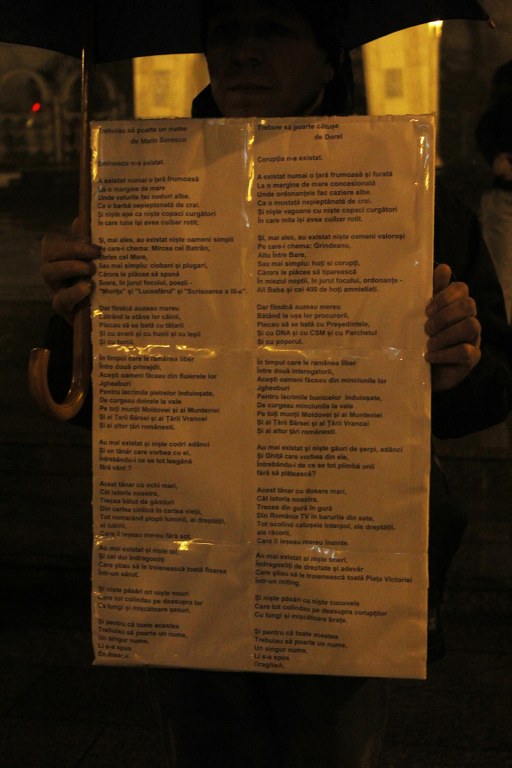 Trebuiau să poarte un nume
de Marin Sorescu
Eminescu n-a existat.
A existat numai o țară frumoasă
La o margine de mare
Unde valurile fac noduri albe.
Ca o barbă nepieptănată de crai.
Și niște ape ca niște copaci curgători
În care luna își avea cuibar rotit.
Și, mai ales, au existat niște oameni simpli
Pe care-i chema: Mircea cel Bătrân,
Ștefan cel Mare,
Sau mai simplu: ciobani și plugari,
Cărora le plăcea să spună
Seara, în jurul focului, poezii -
"Miorița" și "Luceafărul" și "Scrisoarea a III-a".
Dar fiindcă auzeau mereu
Lătrând la stâna lor câinii,
Plecau să se bată cu tătarii
Și cu avarii și cu hunii și cu leșii
Și cu turcii.
În timpul care le rămânea liber
Între două primejdii,
Acești oameni făceau din fluierele lor
Jgheaburi
Pentru lacrimile pietrelor înduioșate,
De curgeau doinele la vale
Pe toți munții Moldovei și ai Munteniei
Și ai Țării Bârsei și ai Țării Vrancei
Și ai altor țări românești.
Au mai existat și niște codri adânci
Și un tânăr care vorbea cu ei,
Întrebându-i ce se tot leagănă
fără vânt ?
Acest tânăr cu ochi mari,
Cât istoria noastră,
Trecea bătut de gânduri
Din cartea cirilică în cartea vieții,
Tot numărând plopii luminii, ai dreptății,
ai iubirii,
Care îi ieșeau mereu fără soț.
Au mai existat și niște tei,
Și cei doi îndrăgostiți
Care știau să le troienească toată floarea
Într-un sărut.
Și niște păsări ori niște nouri
Care tot colindau pe deasupra lor
Ca lungi și mișcătoare șesuri.
Și pentru că toate acestea
Trebuiau să poarte un nume,
Un singur nume,
Li s-a spus
Eminescu.
Trebuie să poarte cătușe
de Dorel
Corupția n-a existat.
A existat numai o țară frumoasă și furată
La o margine de mare concesionată
Unde ordonanțele fac caziere albe.
Ca o mustață nepieptănată de crai.
Și niște vagoane cu niște copaci curgători
În care mita își avea cuibar rotit.
Și, mai ales, au existat niște oameni valoroși
Pe care-i chema: Grindeanu,
Altu Între Bare,
Sau mai simplu: hoți și corupți,
Cărora le plăcea să tipărească
În miezul nopții, în jurul focului, ordonanțe -
Ali Baba și cei 400 de hoți amnistiați.
Dar fiindcă auzeau mereu
Bătând la ușa lor procurorii,
Plecau să se bată cu Președintele,
Și cu DNA și cu CSM și cu Parchetul
Și cu poporul.
În timpul care le rămânea liber
Între două interogatorii,
Acești oameni făceau din minciunile lor
Jgheaburi
Pentru lacrimile bunicilor înduioșate,
De curgeau minciunile la vale
Pe toți munții Moldovei și ai Munteniei
Și ai Țării Bârsei și ai Țării Vrancei
Și ai altor țări românești.
Au mai existat și niște găuri de șerpi, adânci
Și Ghiță care vorbea din ele,
Întrebându-i de ce se tot plimbă unii
fără să plătească?
Acest tânăr cu dosare mari,
Cât istoria noastră,
Trecea din gură în gură
Din România TV în barurile din sate,
Tot ocolind cătușele Interpol, ale dreptății,
ale răcorii,
Care îi ieșeau mereu înainte.
Au mai existat și niște tineri,
Îndrăgostiți de dreptate și adevăr
Care știau să le troienească toată Piața Victoriei
Într-un miting.
Și niște păsări ca niște cucuvele
Care tot colindau pe deasupra corupților
Cu lungi și mișcătoare brațe.
Și pentru că toate acestea
Trebuiau să poarte un nume,
Un singur nume,
Li s-a spus
Dragnea.